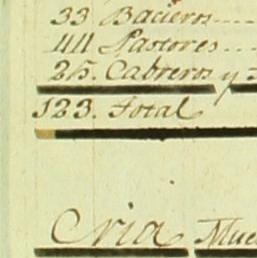 33 Bacieros
44 Pastores
25. Cabreros y
123. Total
Cria Mue